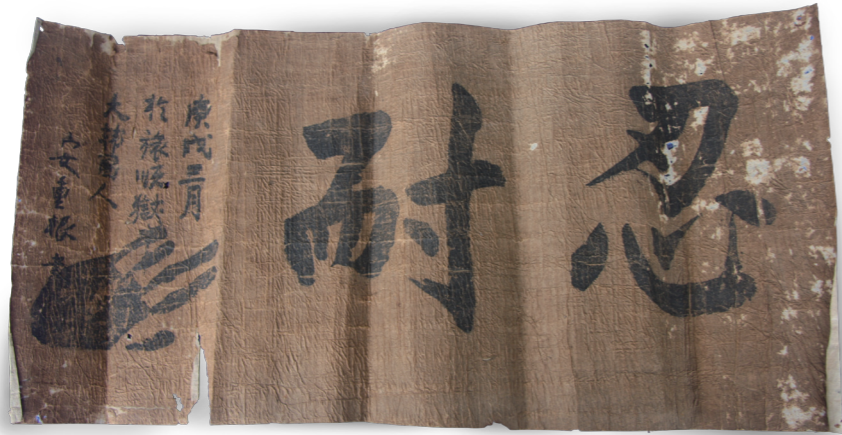 忍耐
庚戌三月
於旅順獄中
大韓國人
安重根書